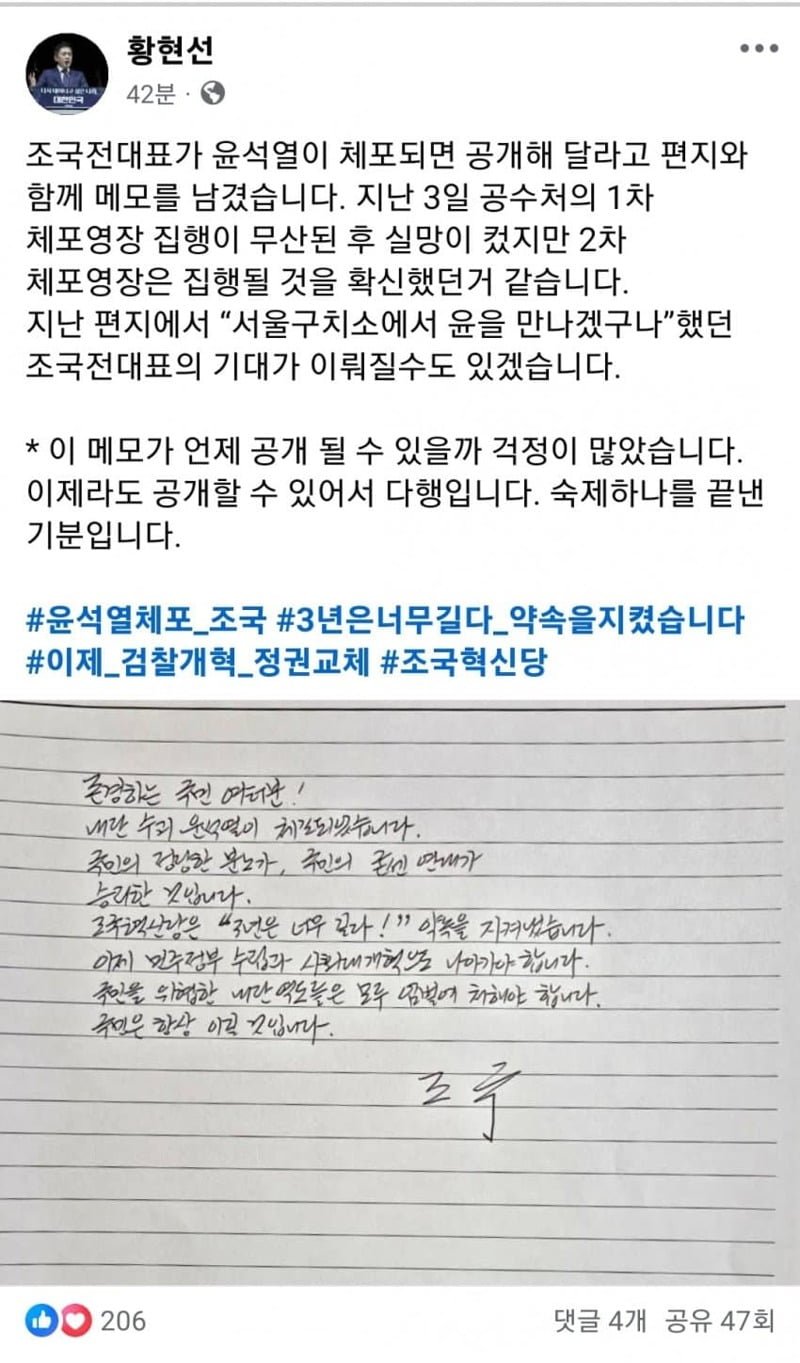 황현선
42분
조국전대표가 윤석열이 체포되면 공개해 달라고 편지와
함께 메모를 남겼습니다. 지난 3일 공수처의 1차
체포영장 집행이 무산된 후 실망이 컸지만 2차
체포영장은 집행될 것을 확신했던거 같습니다.
지난 편지에서 “서울구치소에서 윤을 만나겠구나”했던
조국전대표의 기대가 이뤄질수도 있겠습니다.
* 이 메모가 언제 공개 될 수 있을까 걱정이 많았습니다.
이제라도 공개할 수 있어서 다행입니다. 숙제하나를 끝낸
기분입니다.
#윤석열체포_조국 #3년은너무길다_약속을지켰습니다
#이제_검찰개혁_정권교체 #조국혁신당
존경하는 국민 여러분!
내란 수괴 윤석열이 체포되었습니다.
국민의 정당한 분노가, 국민의 굳센 연대가
승리한 것입니다.
조국혁신당은 “3년은 너무 길다!” 약속을 지켜냈습니다.
이제 민주정부 수립과 사회대개혁으로 나아가야 합니다.
국민을 위협한 내란 역도들은 모두 엄벌에 처해야 합니다.
국민은 항상 이길 것입니다.
조국
206
댓글 4개 공유 47회